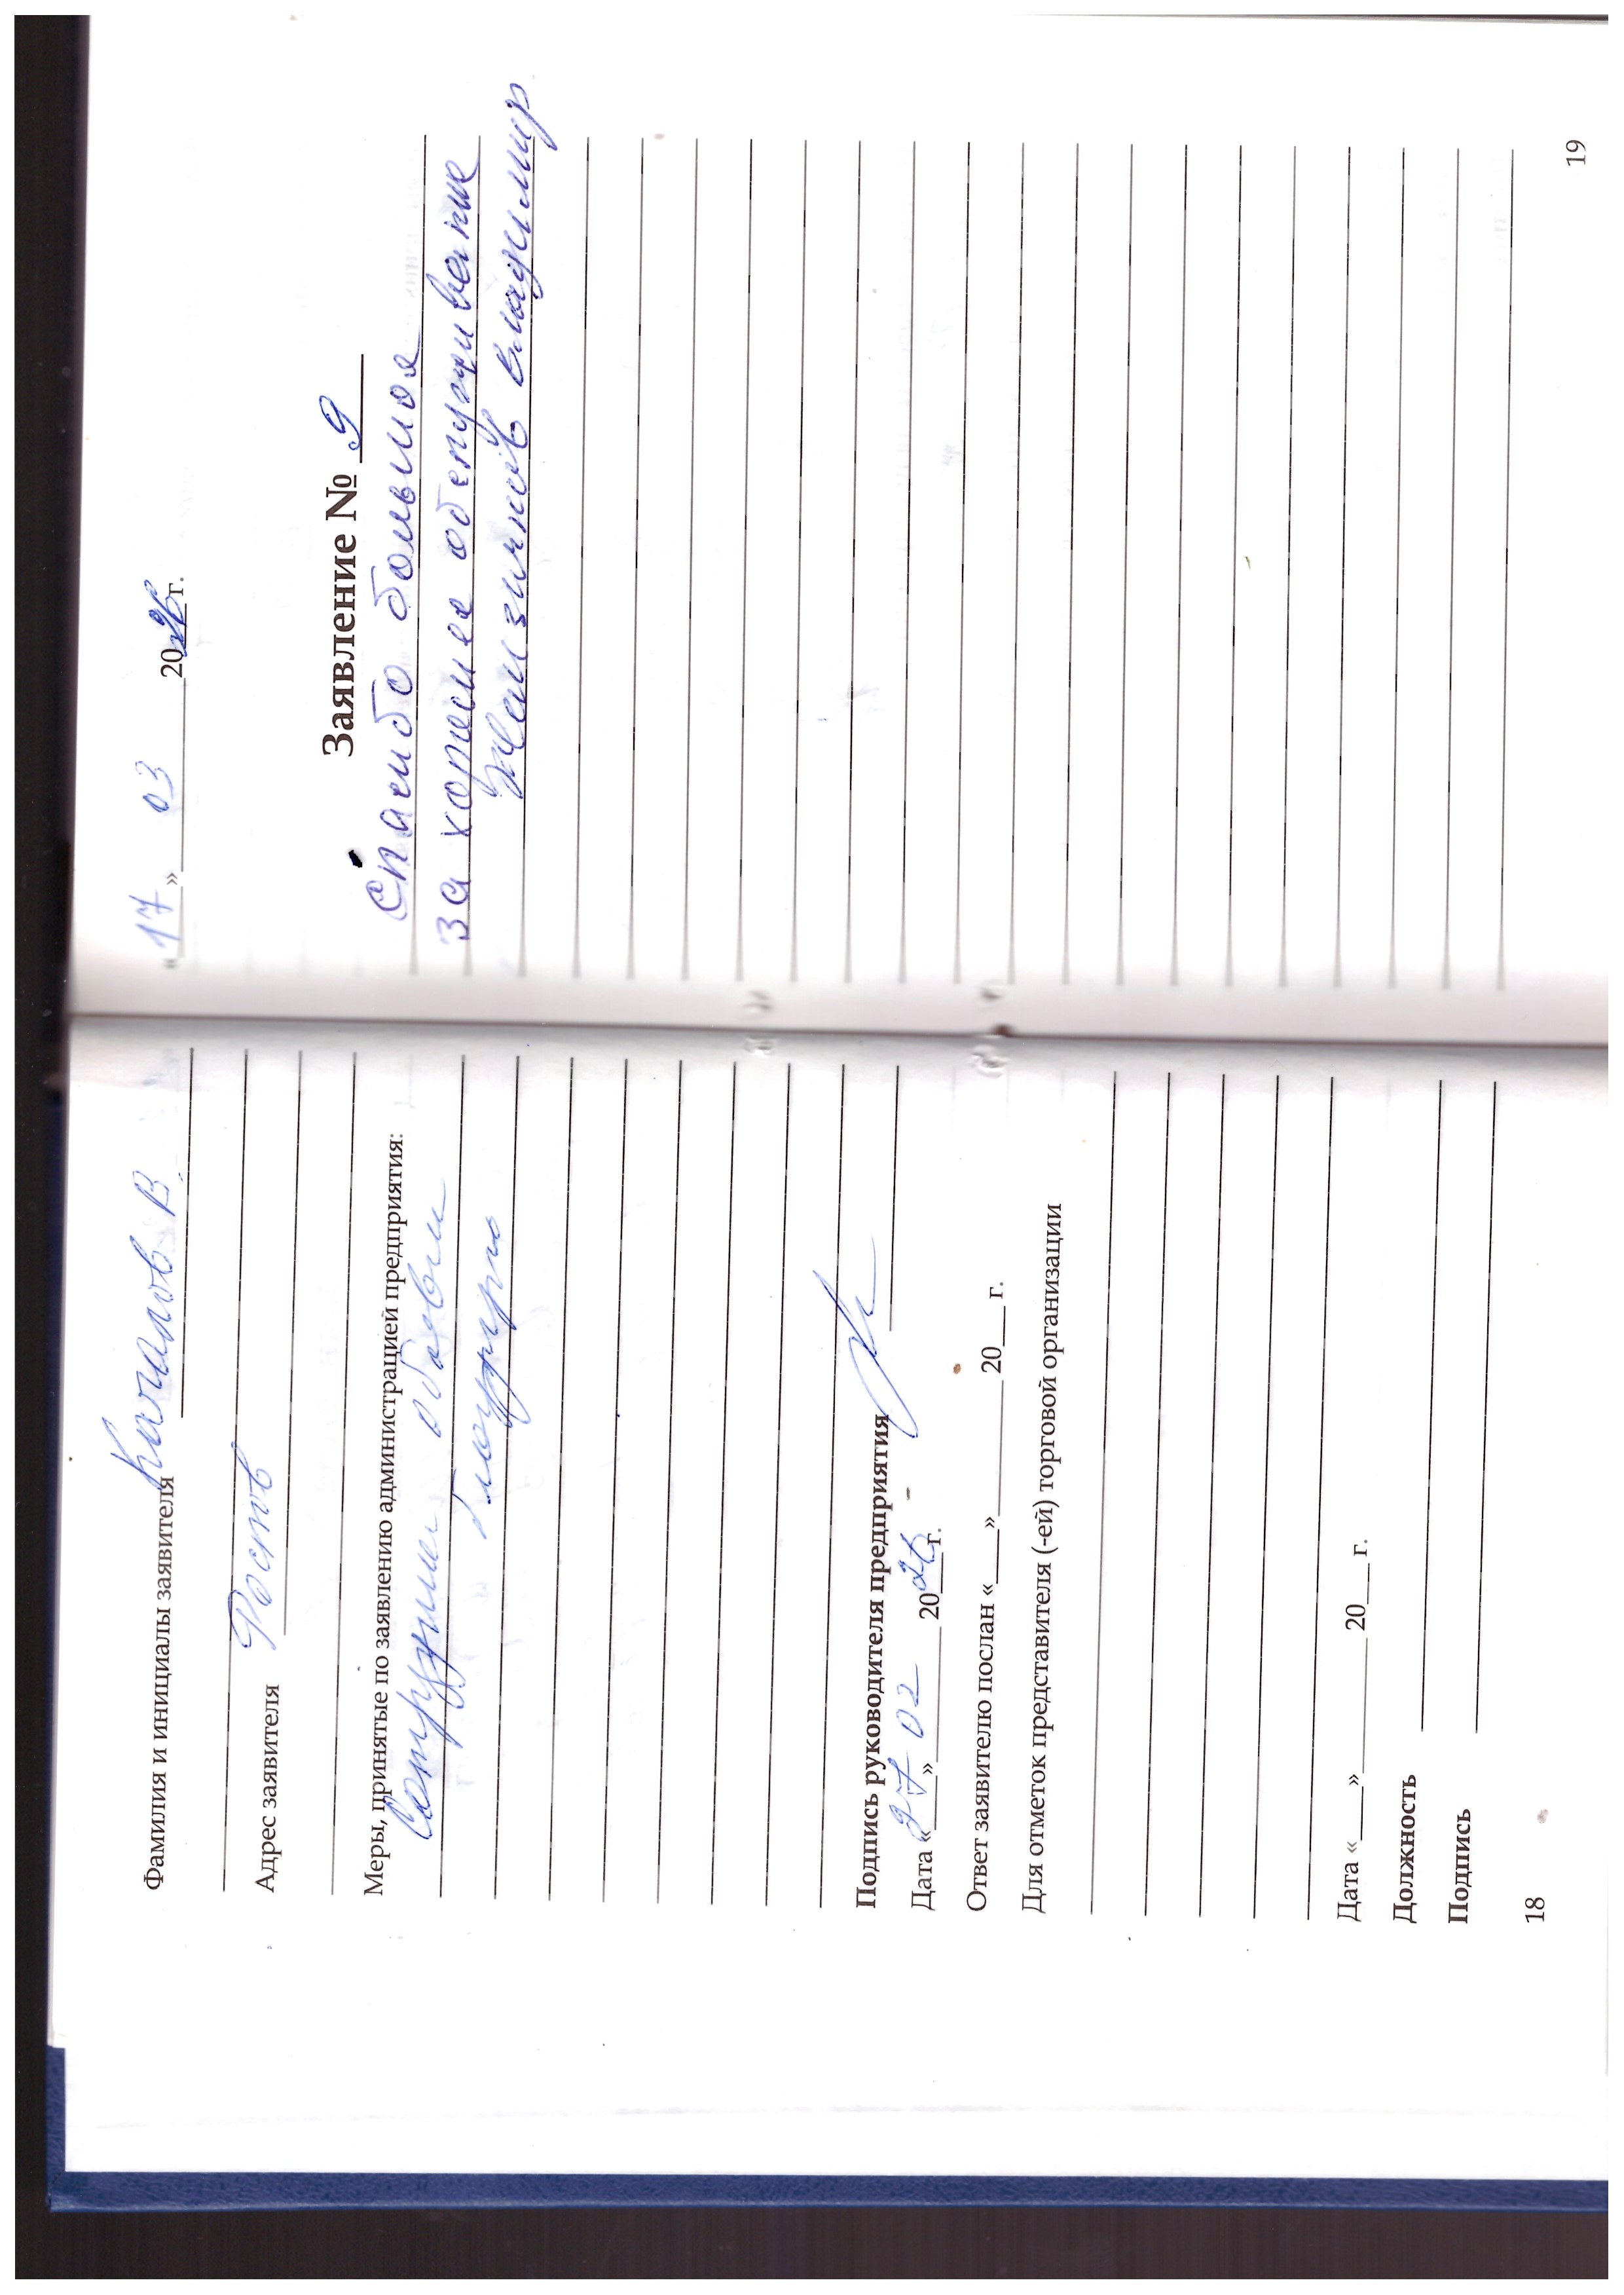 Фамилия и инициалы заявителя Качалов В.
Адрес заявителя Ростов
Меры, принятые по заявлению администрацией предприятия:
Сотруднику объявили
Подпись руководителя предприятия
Дата «27» 02 2026г.
Ответ заявителю послан «___» ________ 20___ г.
Для отметок представителя (-ей) торговой организации
Дата «___» ________ 20___ г.
Должность
Подпись
18
«17» 03 2026г.
Заявление № 9
Спасибо большое
за хорошее обслуживание
Владимир
19